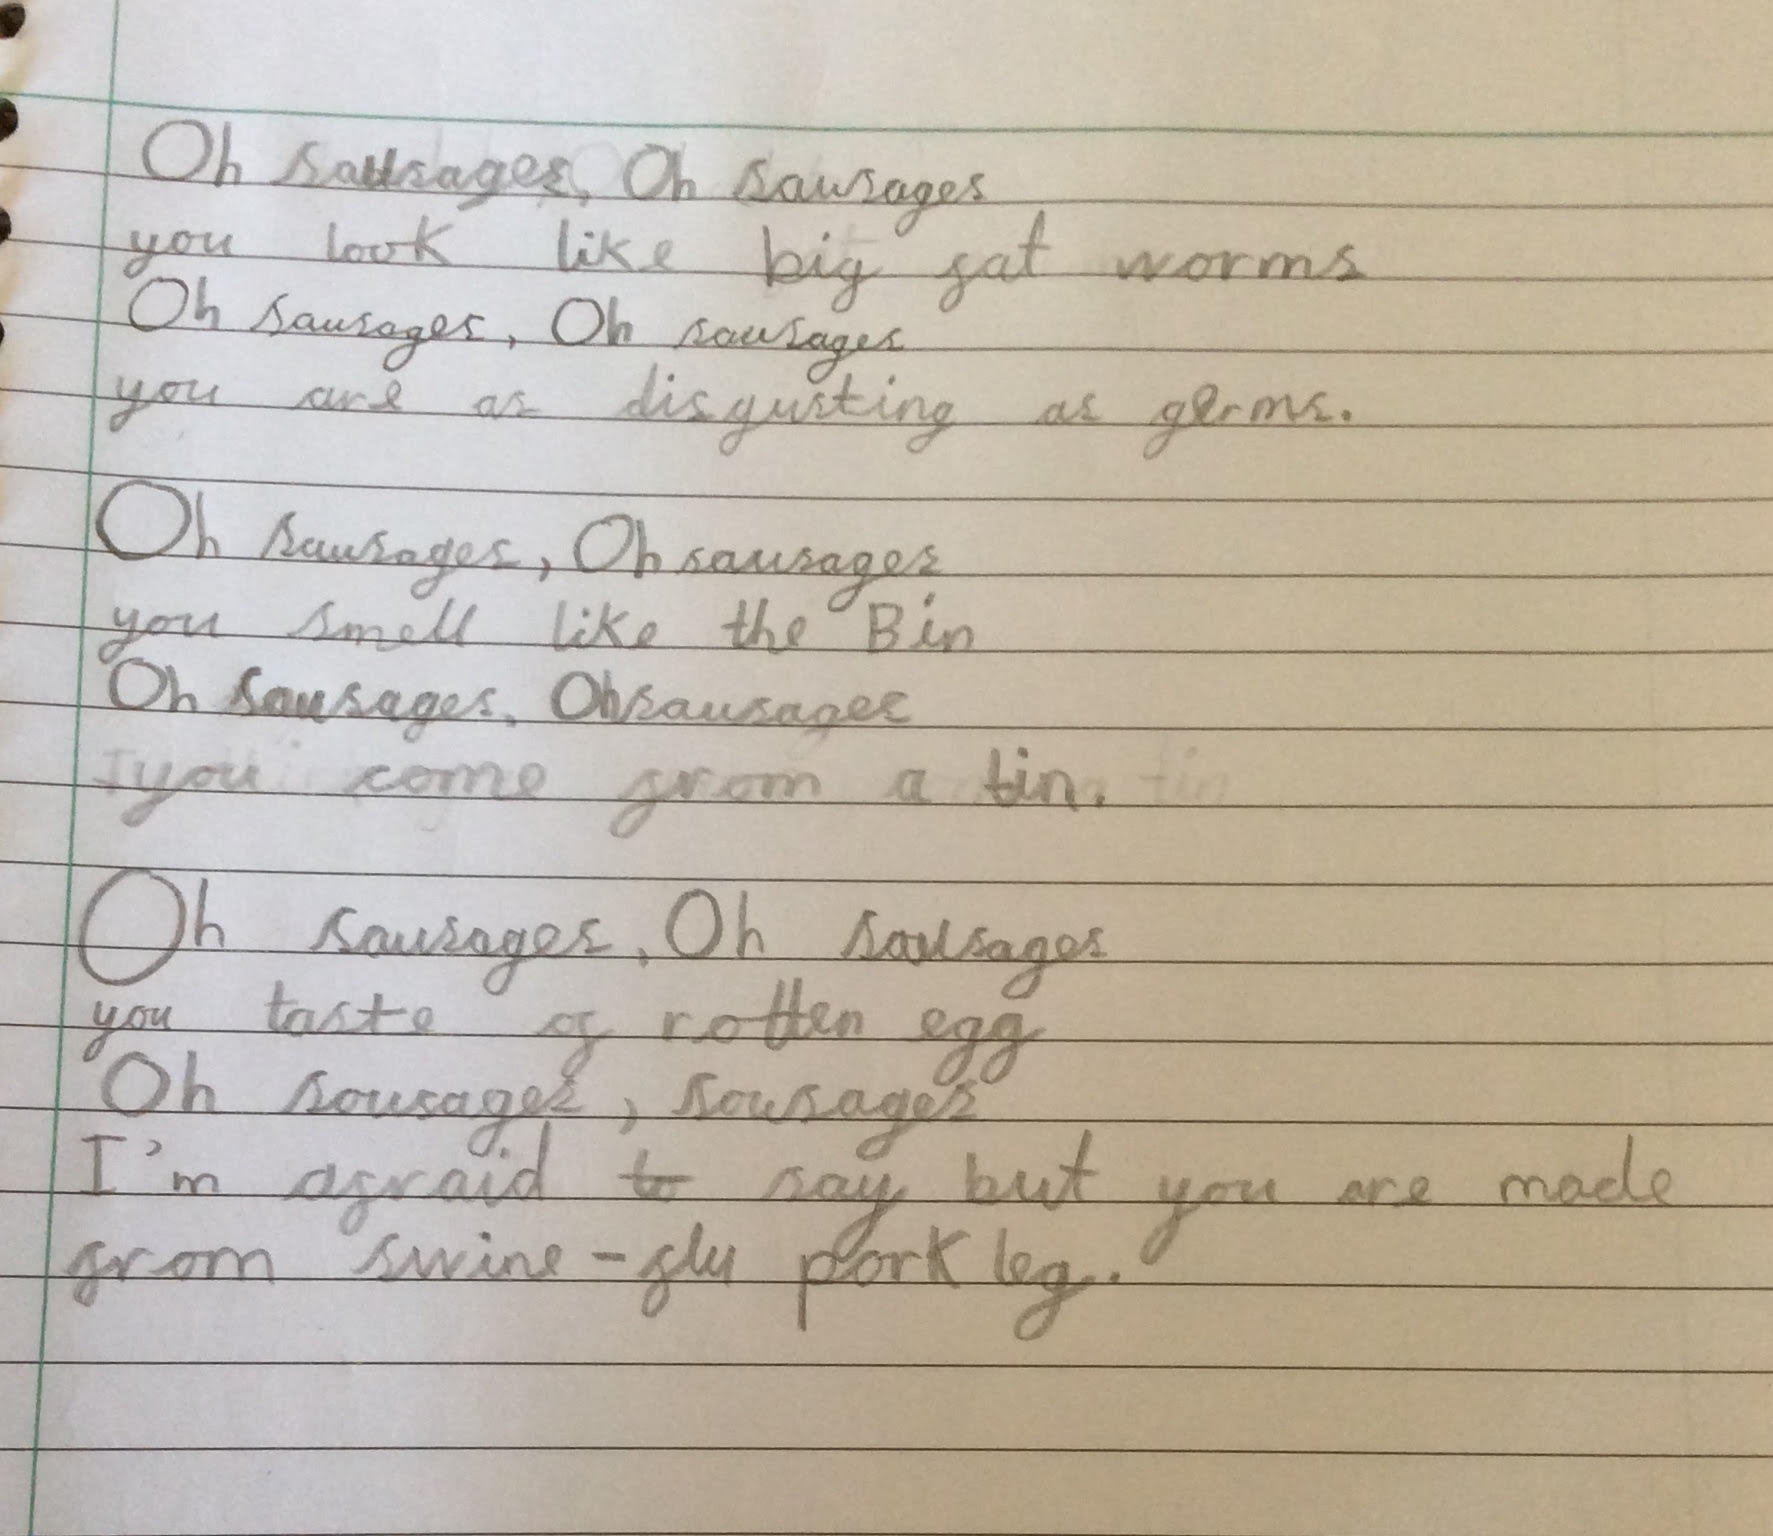 Oh sausages, Oh sausages
you look like big fat worms
Oh sausages, Oh sausages
you are as disgusting as germs.
Oh sausages, Oh sausages
you smell like the Bin
Oh sausages, Oh sausages
you come from a tin.
Oh sausages, Oh sausages
you taste of rotten egg
Oh sousages, sousages
I'm afraid to say but you are made
from swine-flu pork leg.